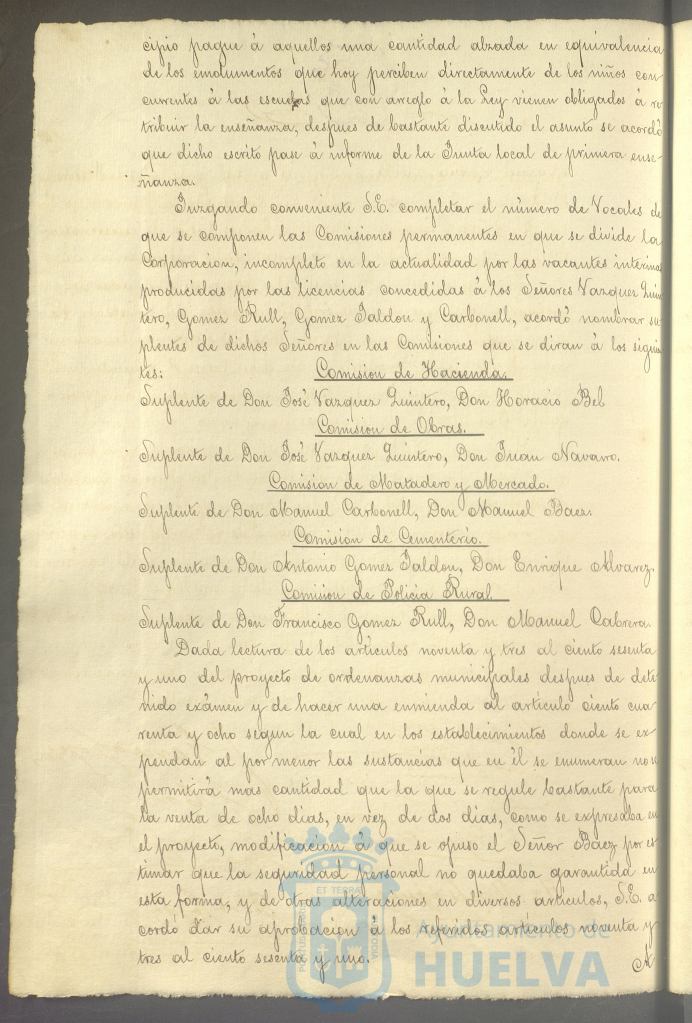 cipio pague á aquellos una cantidad alzada en equivalencia
de los emolumentos que hoy perciben directamente de los niños con-
currentes á las escuelas que con arreglo á la Ley vienen obligados á re
tribuir la enseñanza, despues de bastante discutido el asunto se acordó
que dicho escrito pase á informe de la Junta local de primera ense-
ñanza.
Juzgando conveniente S.E. completar el número de Vocales de
que se componen las Comisiones permanentes en que se divide la
Corporacion, incompleto en la actualidad por las vacantes interinas
producidas por las licencias concedidas á los Señores Vazquez Quin
tero, Gomez Rull, Gomez Jaldon y Carbonell, acordó nombrar su
plentes de dichos Señores en las Comisiones que se diran á los siguien
tes:
Comision de Hacienda.
Suplente de Don José Vazquez Quintero, Don Horacio Bel
Comision de Obras.
Suplente de Don José Vazquez Quintero, Don Juan Navarro.
Comision de Matadero y Mercado.
Suplente de Don Manuel Carbonell, Don Manuel Baez.
Comision de Cementerio.
Suplente de Don Antonio Gomez Jaldon, Don Enrique Alvarez.
Comision de Policia Rural.
Suplente de Don Francisco Gomez Rull, Don Manuel Cabrera.
Dada lectura de los artículos noventa y tres al ciento sesenta
y uno del proyecto de ordenanzas municipales despues de dete
nido exámen y de hacer una enmienda al artículo ciento cua
renta y ocho segun la cual en los establecimientos donde se ex
pendan al por menor las sustancias que en él se enumeran no se
permitirá mas cantidad que la que se regule bastante para
la venta de ocho dias, en vez de dos dias, como se expresaba en
el proyecto, modificacion á que se opuso el Señor Baez por es
timar que la seguridad personal no quedaba garantida en
esta forma, y de otras alteraciones en diversos artículos, S.E. a
cordó dar su aprobacion á los referidos artículos noventa y
tres al ciento sesenta y uno.
A
PORTUS MARIS ET TERRÆ CUSTODIA
Ayuntamiento de
HUELVA